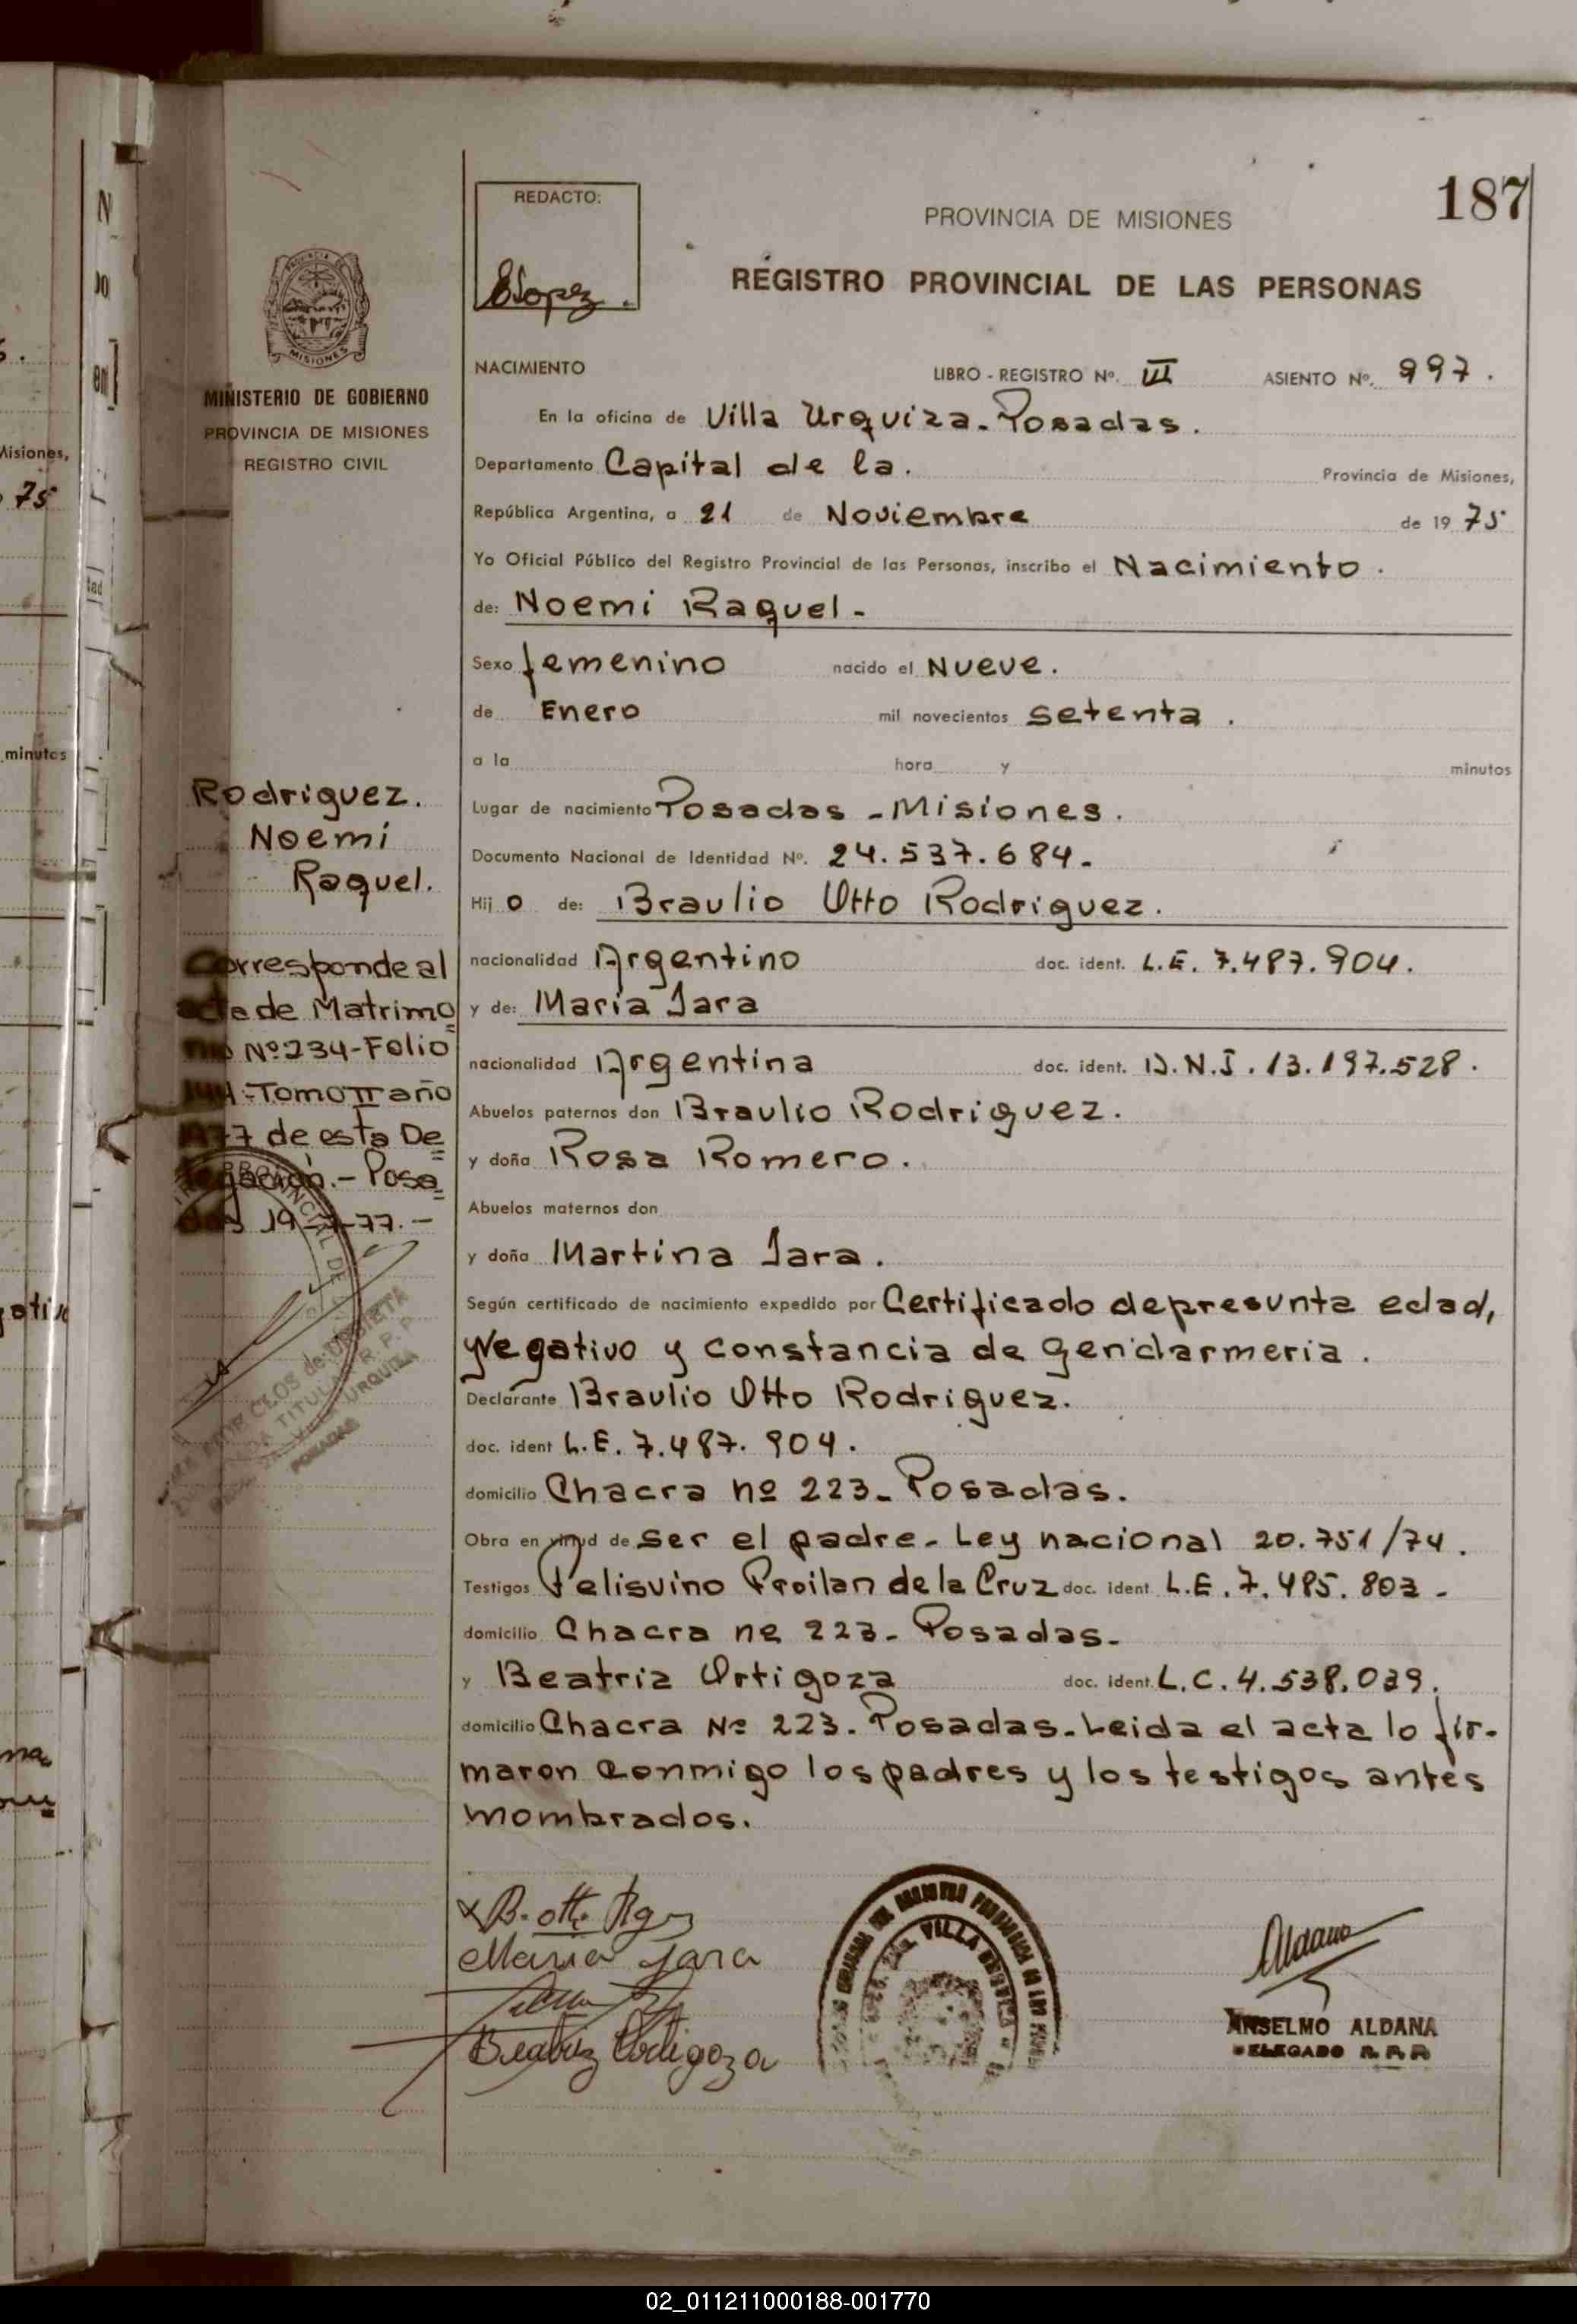 187
REDACTO:
ELopez.
PROVINCIA DE MISIONES
REGISTRO PROVINCIAL DE LAS PERSONAS
PROVINCIA DE
MISIONES
MINISTERIO DE GOBIERNO
PROVINCIA DE MISIONES
REGISTRO CIVIL
NACIMIENTO LIBRO - REGISTRO Nº. III ASIENTO Nº. 997.
En la oficina de Villa Urquiza - Posadas.
Departamento Capital de la. Provincia de Misiones,
República Argentina, a 21 de Noviembre de 1975
Yo Oficial Público del Registro Provincial de las Personas, inscribo el Nacimiento.
de: Noemi Raquel -
Sexo femenino nacido el Nueve.
de Enero mil novecientos setenta.
a la hora y minutos
Lugar de nacimiento Posadas - Misiones.
Documento Nacional de Identidad Nº. 24.537.684-
Hijo de: Braulio Otto Rodriguez.
nacionalidad Argentino doc. ident. L.E. 7.487.904.
y de: Maria Jara
nacionalidad Argentina doc. ident. D.N.I. 13.197.528.
Abuelos paternos don Braulio Rodriguez.
y doña Rosa Romero.
Abuelos maternos don
y doña Martina Jara.
Según certificado de nacimiento expedido por Certificado de presunta edad,
Negativo y constancia de gendarmeria.
Declarante Braulio Otto Rodriguez.
doc. ident L.E. 7.487.904.
domicilio Chacra nº 223- Posadas.
Obra en virtud de ser el padre- Ley nacional 20.751/74.
Testigos Pelisvino Froilan de la Cruz doc. ident L.E. 7.485.803-
domicilio Chacra nº 223- Posadas-
y Beatriz Ortigoza doc. ident. L.C. 4.538.039.
domicilio Chacra Nº 223. Posadas- Leida el acta lo fir-
maron conmigo los padres y los testigos antes
mombrados.
Rodriguez.
Noemi
Raquel.
Corresponde al
acta de Matrimo
nio Nº 234-Folio
144-Tomo II año
1977 de esta De
legación.- Posa
das 19-7-77.-
TITULAR R. P. P.
VILLA URQUIZA
POSADAS
B. otto Rgz
Maria Jara
Beatriz Ortigoza
VILLA URQUIZA
Aldana
ANSELMO ALDANA
DELEGADO R.P.P.
Misiones,
75
minutos
02_011211000188-001770